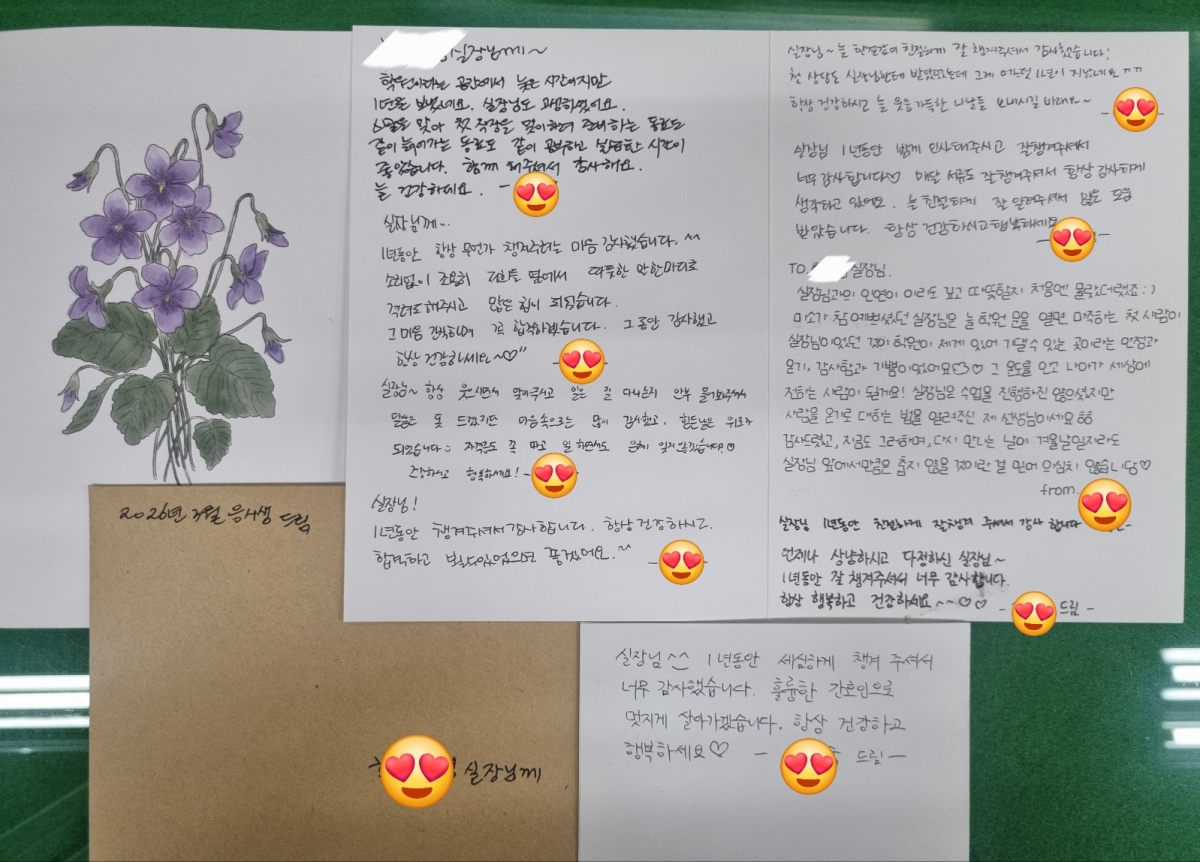 실장님께~
학원이라는 공간에서 늦은 시간이지만
1년을 보냈네요. 실장님도 고생하셨어요.
같이 늙어가는 동료도 같이 공부하고 시간이
좋았습니다. 함께 해주셔서 감사해요.
늘 건강하세요. -
실장님께..
1년동안 항상 무언가 챙겨주려는 마음 감사했습니다. ^^
소리없이 조용히 옆에서 따뜻한 말 한마디로
격려도해주시고 많은 힘이 되었습니다.
그 마음 간직하며 꼭 합격하겠습니다. 그동안 감사했고
항상 건강하세요~♡"
실장님~ 항상 웃으시면서 맞아주시고 안부 물어봐주셔서
말씀은 못 드렸지만 마음속으로는 많이 감사했고. 힘든날은 위로가
되었습니다 :) 자격증도 꼭 따고 일 하면서도 잊지않겠습니다!☺
건강하시고 행복하세요! -
실장님!
1년동안 챙겨주셔서 감사합니다. 항상 건강하시고.
합격하고 뵐 수 있었으면 좋겠어요.^^
실장님~ 늘 한결같이 친절하게 잘 챙겨주셔서 감사했습니다!
첫 상담도 실장님한테 받았었는데 그게 어느덧 1년이 지났네요ㅠㅠ
항상 건강하시고 늘 웃음 가득한 나날들 보내시길 바래요~
실장님 1년동안 밝게 인사해주시고 잘챙겨주셔서
너무 감사합니다♡ 매달 서류도 잘챙겨주셔서 항상 감사하게
생각하고 있어요. 늘 친절하게 잘 알려주셔서 많은 도움
받았습니다. 항상 건강하시고 행복하세요
TO. 실장님.
실장님과의 인연이 이리도 깊고 따뜻할지 처음엔 몰랐더랬죠 : )
미소가 참 예쁘셨던 실장님은 늘 학원 문을 열면 마주하는 첫 사람이
실장님이었던 것이 학원이 제게 있어 기댈 수 있는 곳이라는 안정과
온기, 감사함과 기쁨이었어요♡ 그 온도를 안고 나아가 세상에
전하는 사람이 될게요! 실장님은 수업을 진행하진 않으셨지만
사람을 온기로 대하는 법을 알려주신 제 선생님이세요
감사드렸고, 지금도 그러하며, 다시 만나는 날이 겨울날일지라도
실장님 앞에서만큼은 춥지 않을 것이란 걸 믿어 의심치 않습니당♡
from.
실장님 1년동안 친절하게 잘챙겨 주셔서 감사 합니다
언제나 상냥하시고 다정하신 실장님~
1년동안 잘 챙겨주셔서 너무 감사합니다.
항상 행복하고 건강하세요~~♡♡ - 드림 -
2026년 3월 응시생 드림
실장님께
실장님^^ 1년동안 세심하게 챙겨 주셔서
너무 감사했습니다. 훌륭한 간호인으로
멋지게 살아가겠습니다. 항상 건강하고
행복하세요♡ - 드림 -